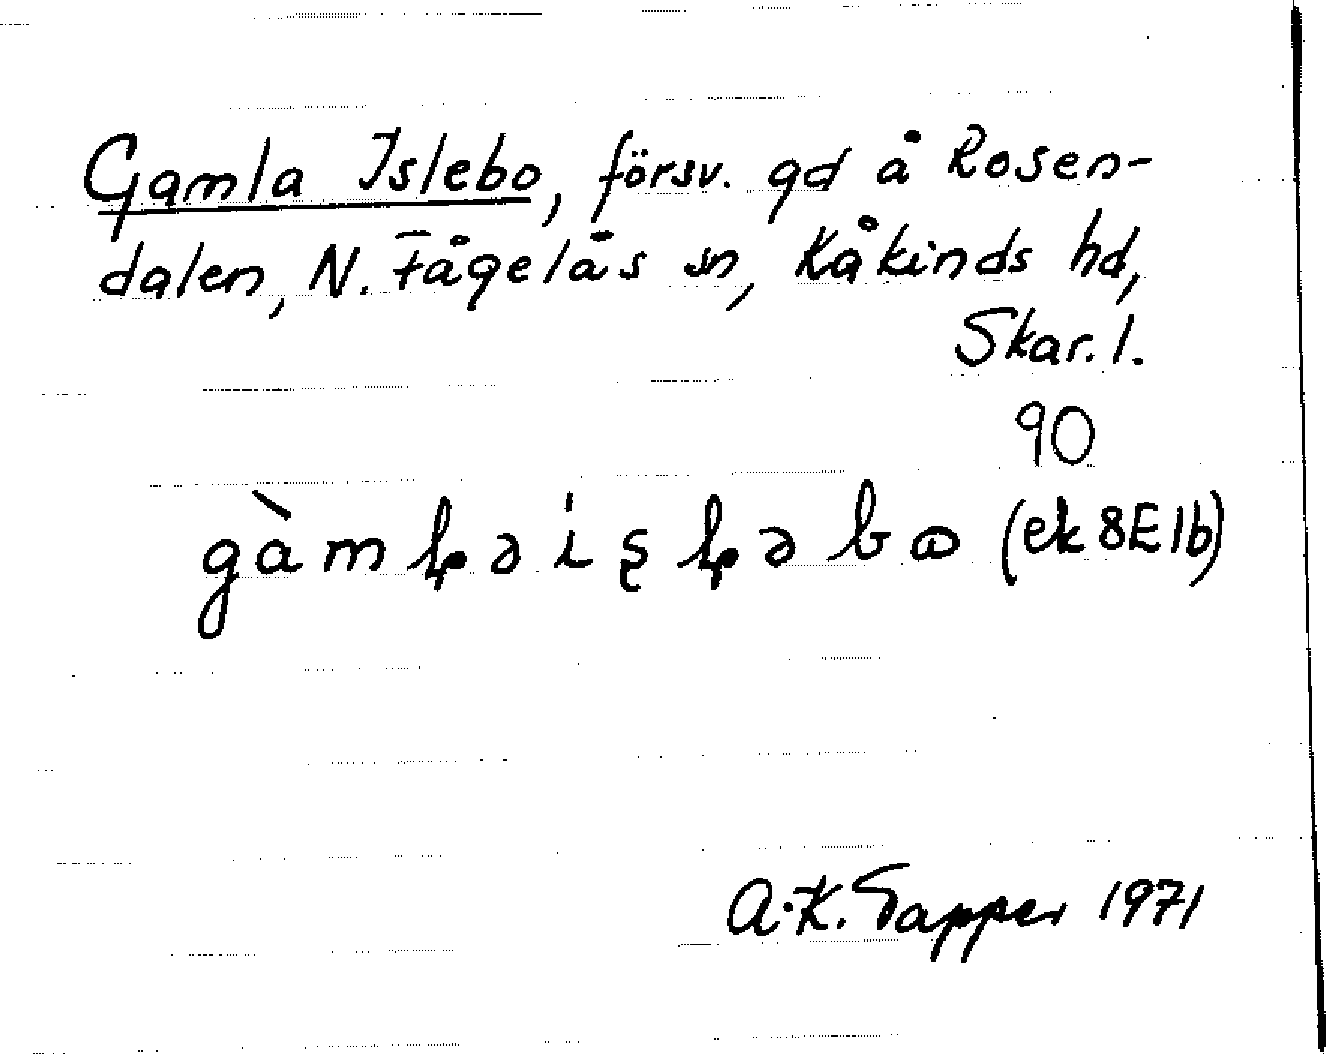 Gamla Islebo, försv. gd å Rosen-
dalen, N. Fågelås sn, Kåkinds hd,
Skar. l.
90
(ek 8E1b)
A.-K. Tapper 1971